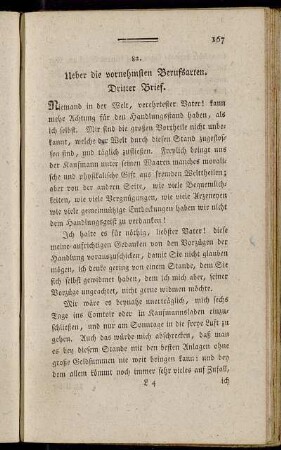 167
82.
Ueber die vornehmsten Berufsarten.
Dritter Brief.
Niemand in der Welt, verehrtester Vater! kann
mehr Achtung für den Handlungsstand haben, als
ich selbst. Mir sind die großen Vortheile nicht unbe-
kannt, welche der Welt durch diesen Stand zugeflos-
sen sind, und täglich zufließen. Freylich bringt uns
der Kaufmann unter seinen Waaren manches morali-
sche und physikalische Gift aus fremden Welttheilen;
aber von der andern Seite, wie viele Bequemlich-
keiten, wie viele Vergnügungen, wie viele Arzeneyen
wie viele gemeinnützige Entdeckungen haben wir nicht
dem Handlungsgeist zu verdanken!
Ich halte es für nöthig, liebster Vater! diese
meine aufrichtigen Gedanken von den Vorzügen der
Handlung vorauszuschicken, damit Sie nicht glauben
mögen, ich denke gering von einem Stande, dem Sie
sich selbst gewidmet haben, dem ich mich aber, seiner
Vorzüge ungeachtet, nicht gerne widmen möchte.
Mir wäre es beynahe unerträglich, mich sechs
Tage ins Comtoir oder in Kaufmannsladen einzu-
schließen, und nur am Sonntage in die freye Luft zu
gehen. Auch das würde mich abschrecken, daß man
es bey diesem Stande mit den besten Anlagen ohne
große Geldsummen nie weit bringen kann; und bey
dem allem kömmt noch immer sehr vieles auf Zufall,
L 4
ich